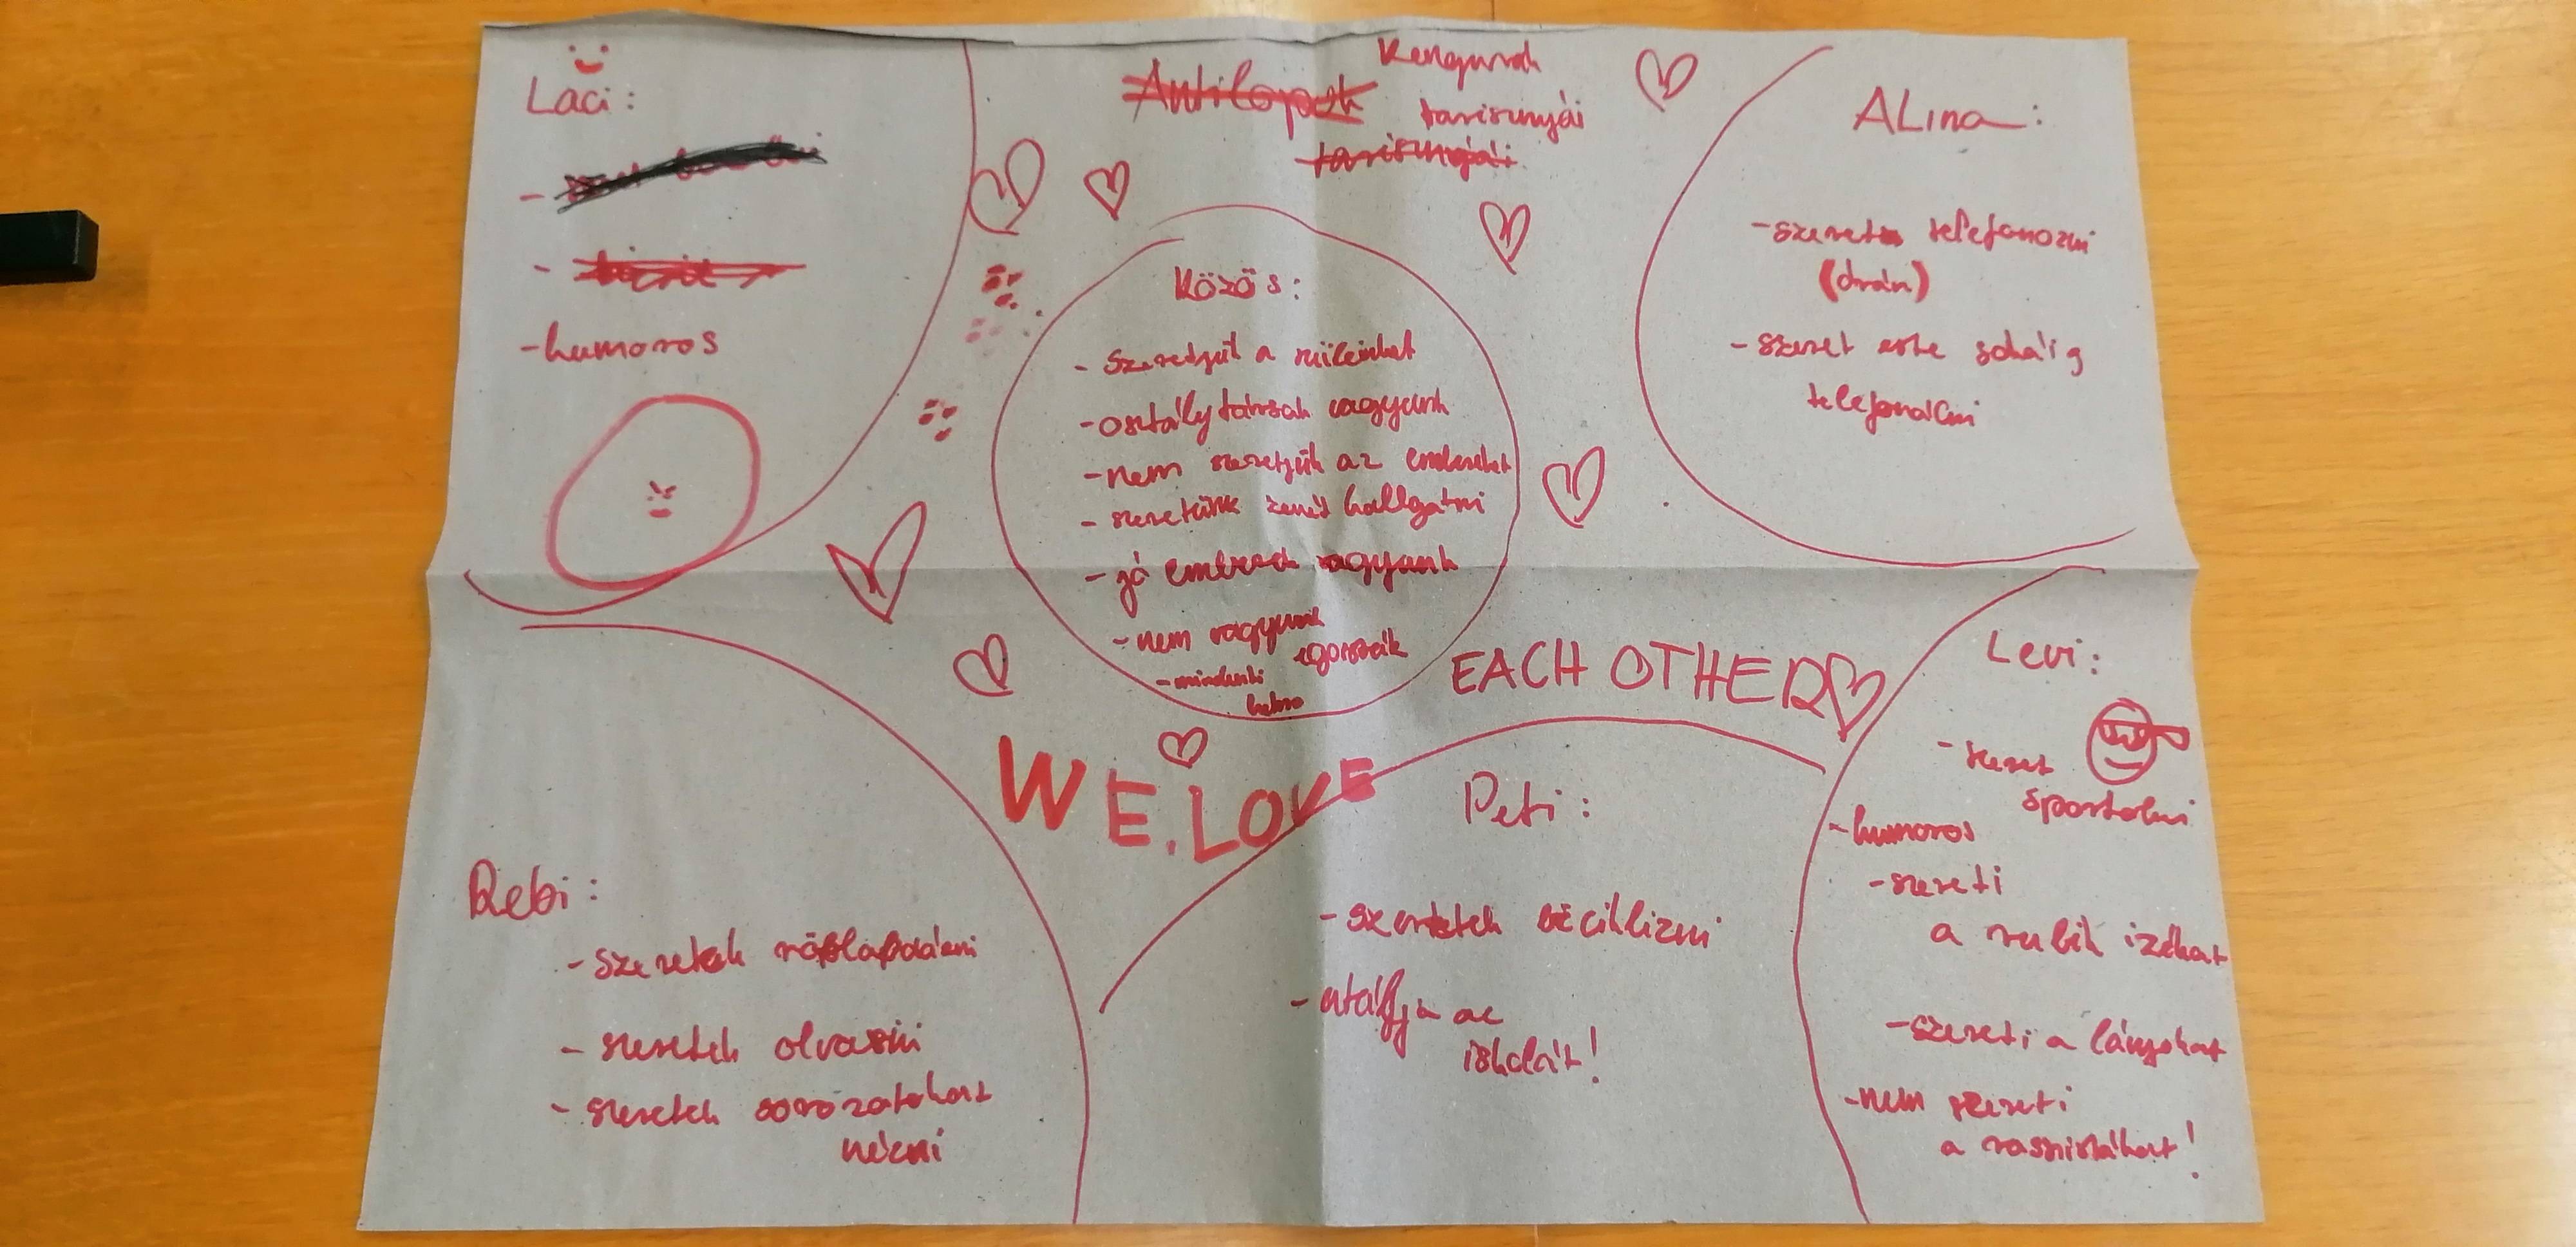 Laci:
-
-
-humoros
Antilopok
Kenguruk
tarisznyái
tarisznyái
ALina:
-szeret telefonozni
(drán)
-szeret este sokáig
telefonálni
Közös:
- Szeretjük a
-osztálytársak vagyunk
-nem szeretjük az embereket
- szeretünk zenét hallgatni
- jó emberek vagyunk
-nem vagyunk
egoisták
-mindenki
WE.LOVE
EACH OTHER
Levi:
-szeret
sportolni
-humoros
-szereti
a rubik izéket
-szereti a lányokat
-nem szereti
a rasszistákat!
Rebi:
-szeretek röplabdázni
- szeretek olvasni
- szeretek sorozatokat
nézni
Peti:
-szeretek biciklizni
-utálja az
iskolát!